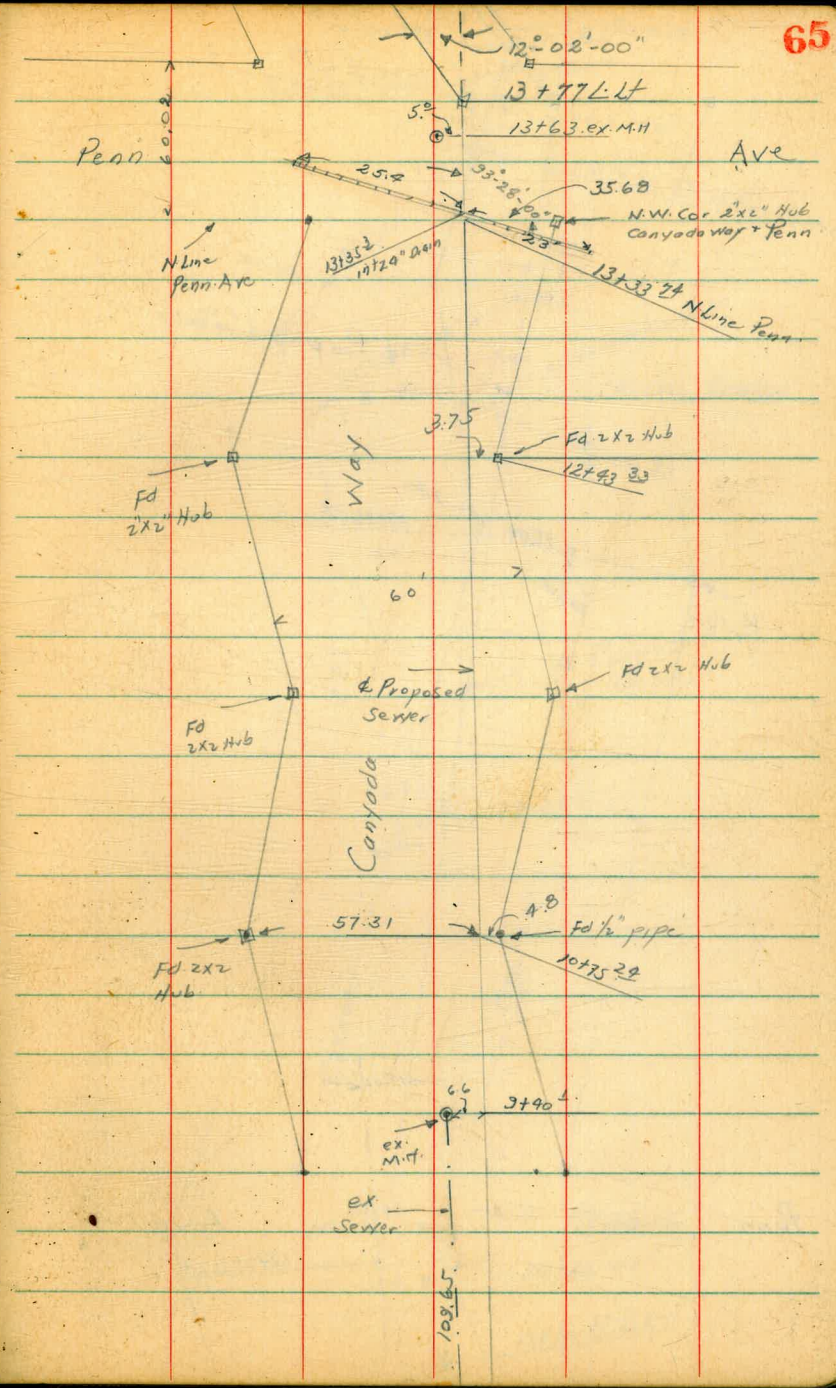 65
12°-02'-00"
13+77 L.Lt
5.0
13+63.ex.M.H
Penn
60.02
Ave
25.4
93°-28'-00"
35.68
N.W. Cor 2"x2" Hub
Canyada Way + Penn
23
N Line
Penn. Ave
13+35
Drain
13+33 74 N Line Penn.
3.75
Fd 2x2 Hub
12+43 33
Way
Fd
2"x2" Hub
60'
Fd 2x2 Hub
℄ Proposed
Sewer
Fd
2x2 Hub
Canyada
4.8
57.31
Fd 1/2" pipe
10+75 24
Fd 2x2
Hub
6.6
9+40
ex.
M.H.
ex
Sewer
109.65